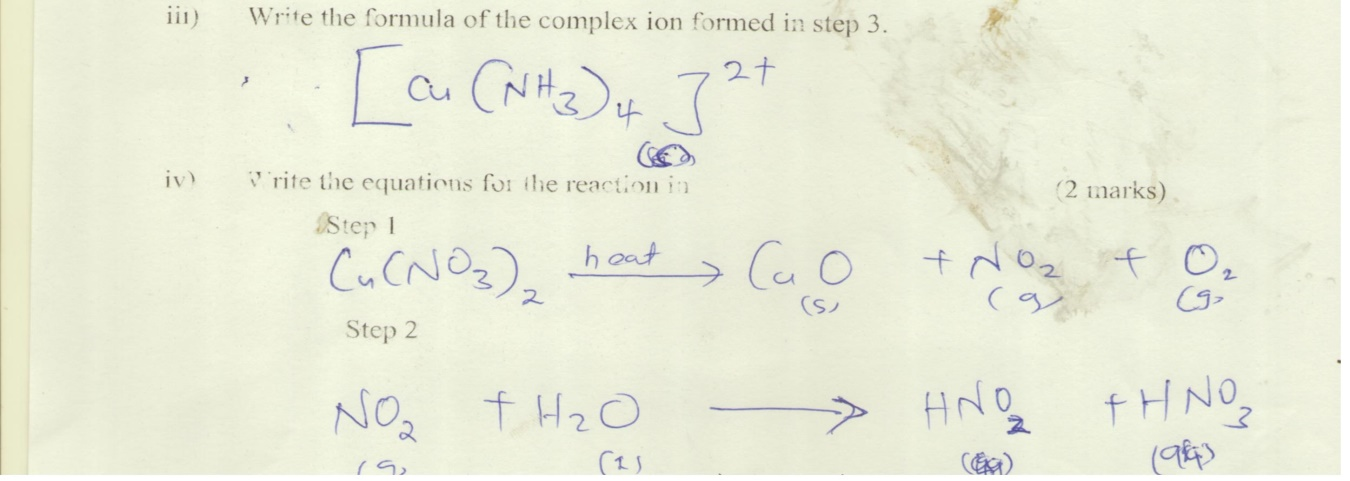 iii) Write the formula of the complex ion formed in step 3.
[Cu(NH3)4]2+
iv) Write the equations for the reaction in (2 marks)
Step 1
Cu(NO3)2 heat → CuO(s) + NO2(g) + O2(g)
Step 2
NO2(g) + H2O(l) → HNO2 + HNO3